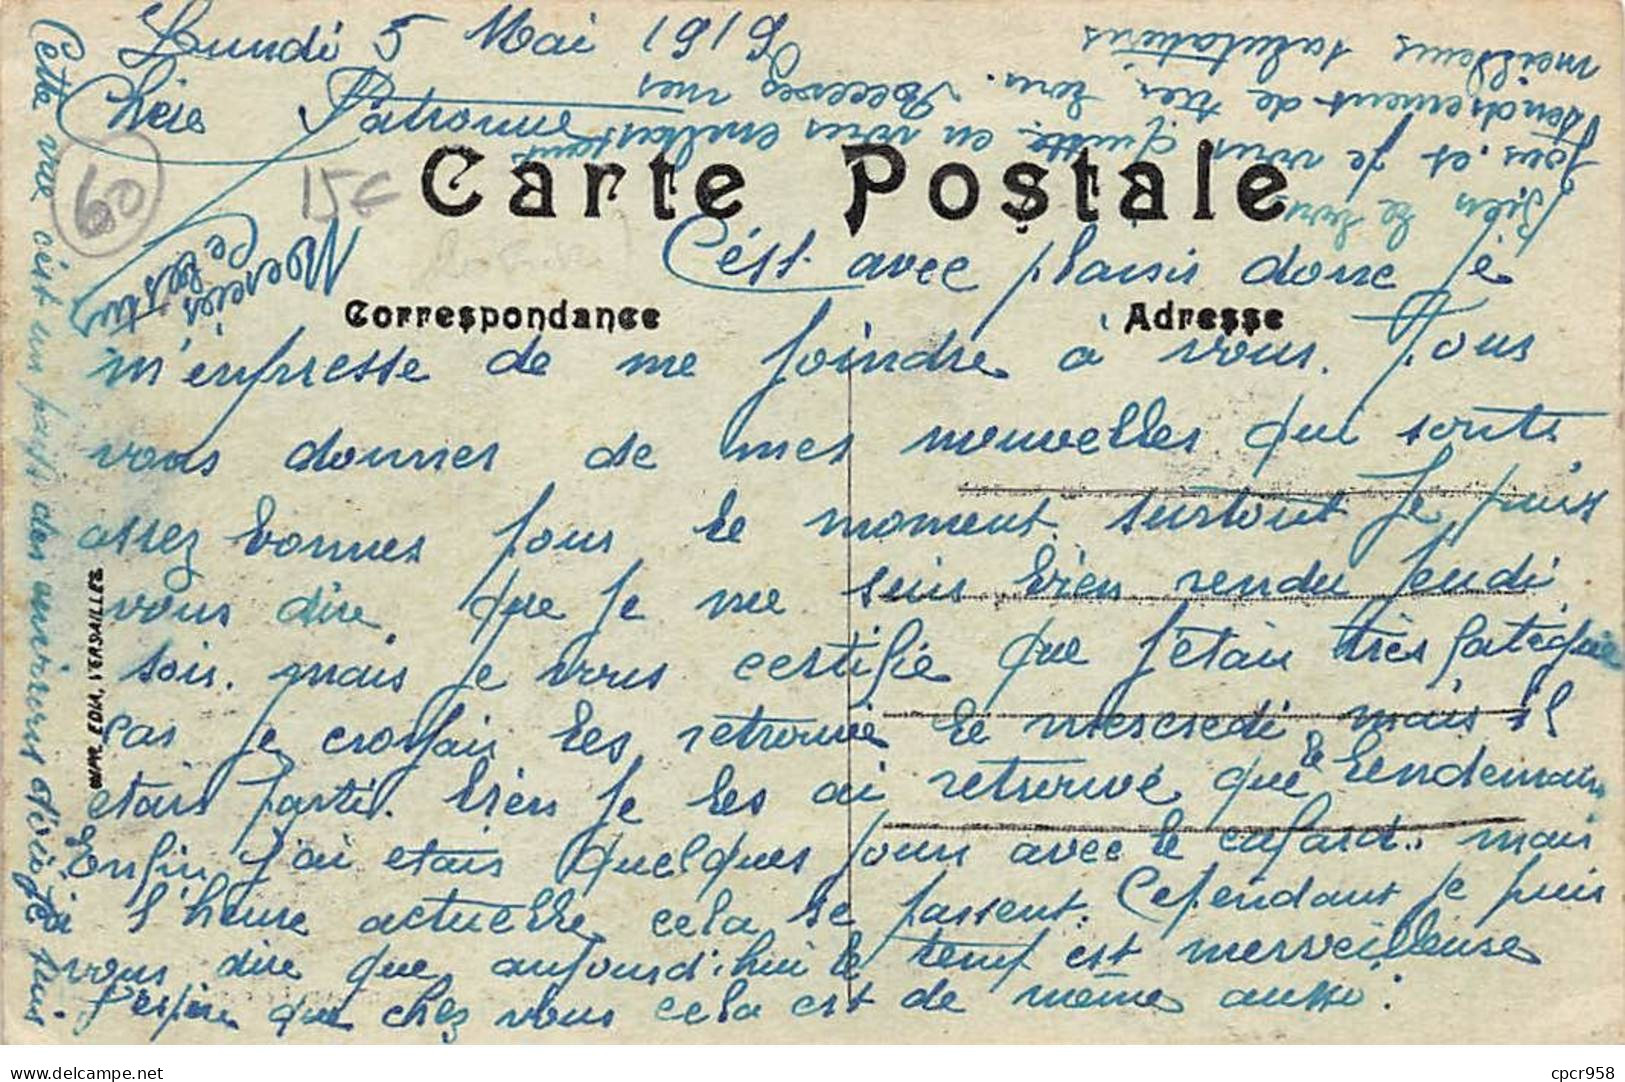 Lundi 5 Mai 1919
Chère Patronne
60
15€
Carte Postale
Correspondance
Adresse
C'est avec plaisir donc je
m'enpresse de me joindre à vous. Pour
vous donner de mes nouvelles qui sont
assez bonnes pour le moment. surtout je puis
vous dire que je me suis bien rendu Jeudi
soir. mais je vous certifie que j'étais très fatiguée
car je croyais les retrouvé le mercredi mais il
etais parti. bien je les ai retrouvé que le lendemain
Enfin j'ai etais quelques jours avec le cafard.. mais
à l'heure actuelle cela se passent. Cependant je puis
vous dire que aujourd'hui le temp est merveilleuse
J'espère que chez vous cela est de même aussi.
Bien le
tous, et je vous quitte en vous embrassant
tendrement de tres, Recevez mes
meilleurs salutations
Cette vue c'est un pays des environs d'où je suis.
Merciers
Celestin
IMP. EDIA, VERSAILLES
cpcr958